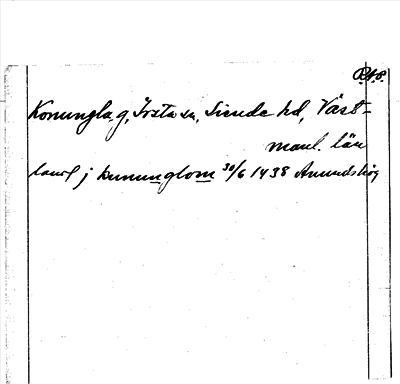 R.A.P.
Konungla g, Irsta sn, Siende hd, Väst-
manl. län
land j kununglom 30/6 1438 Anundshög